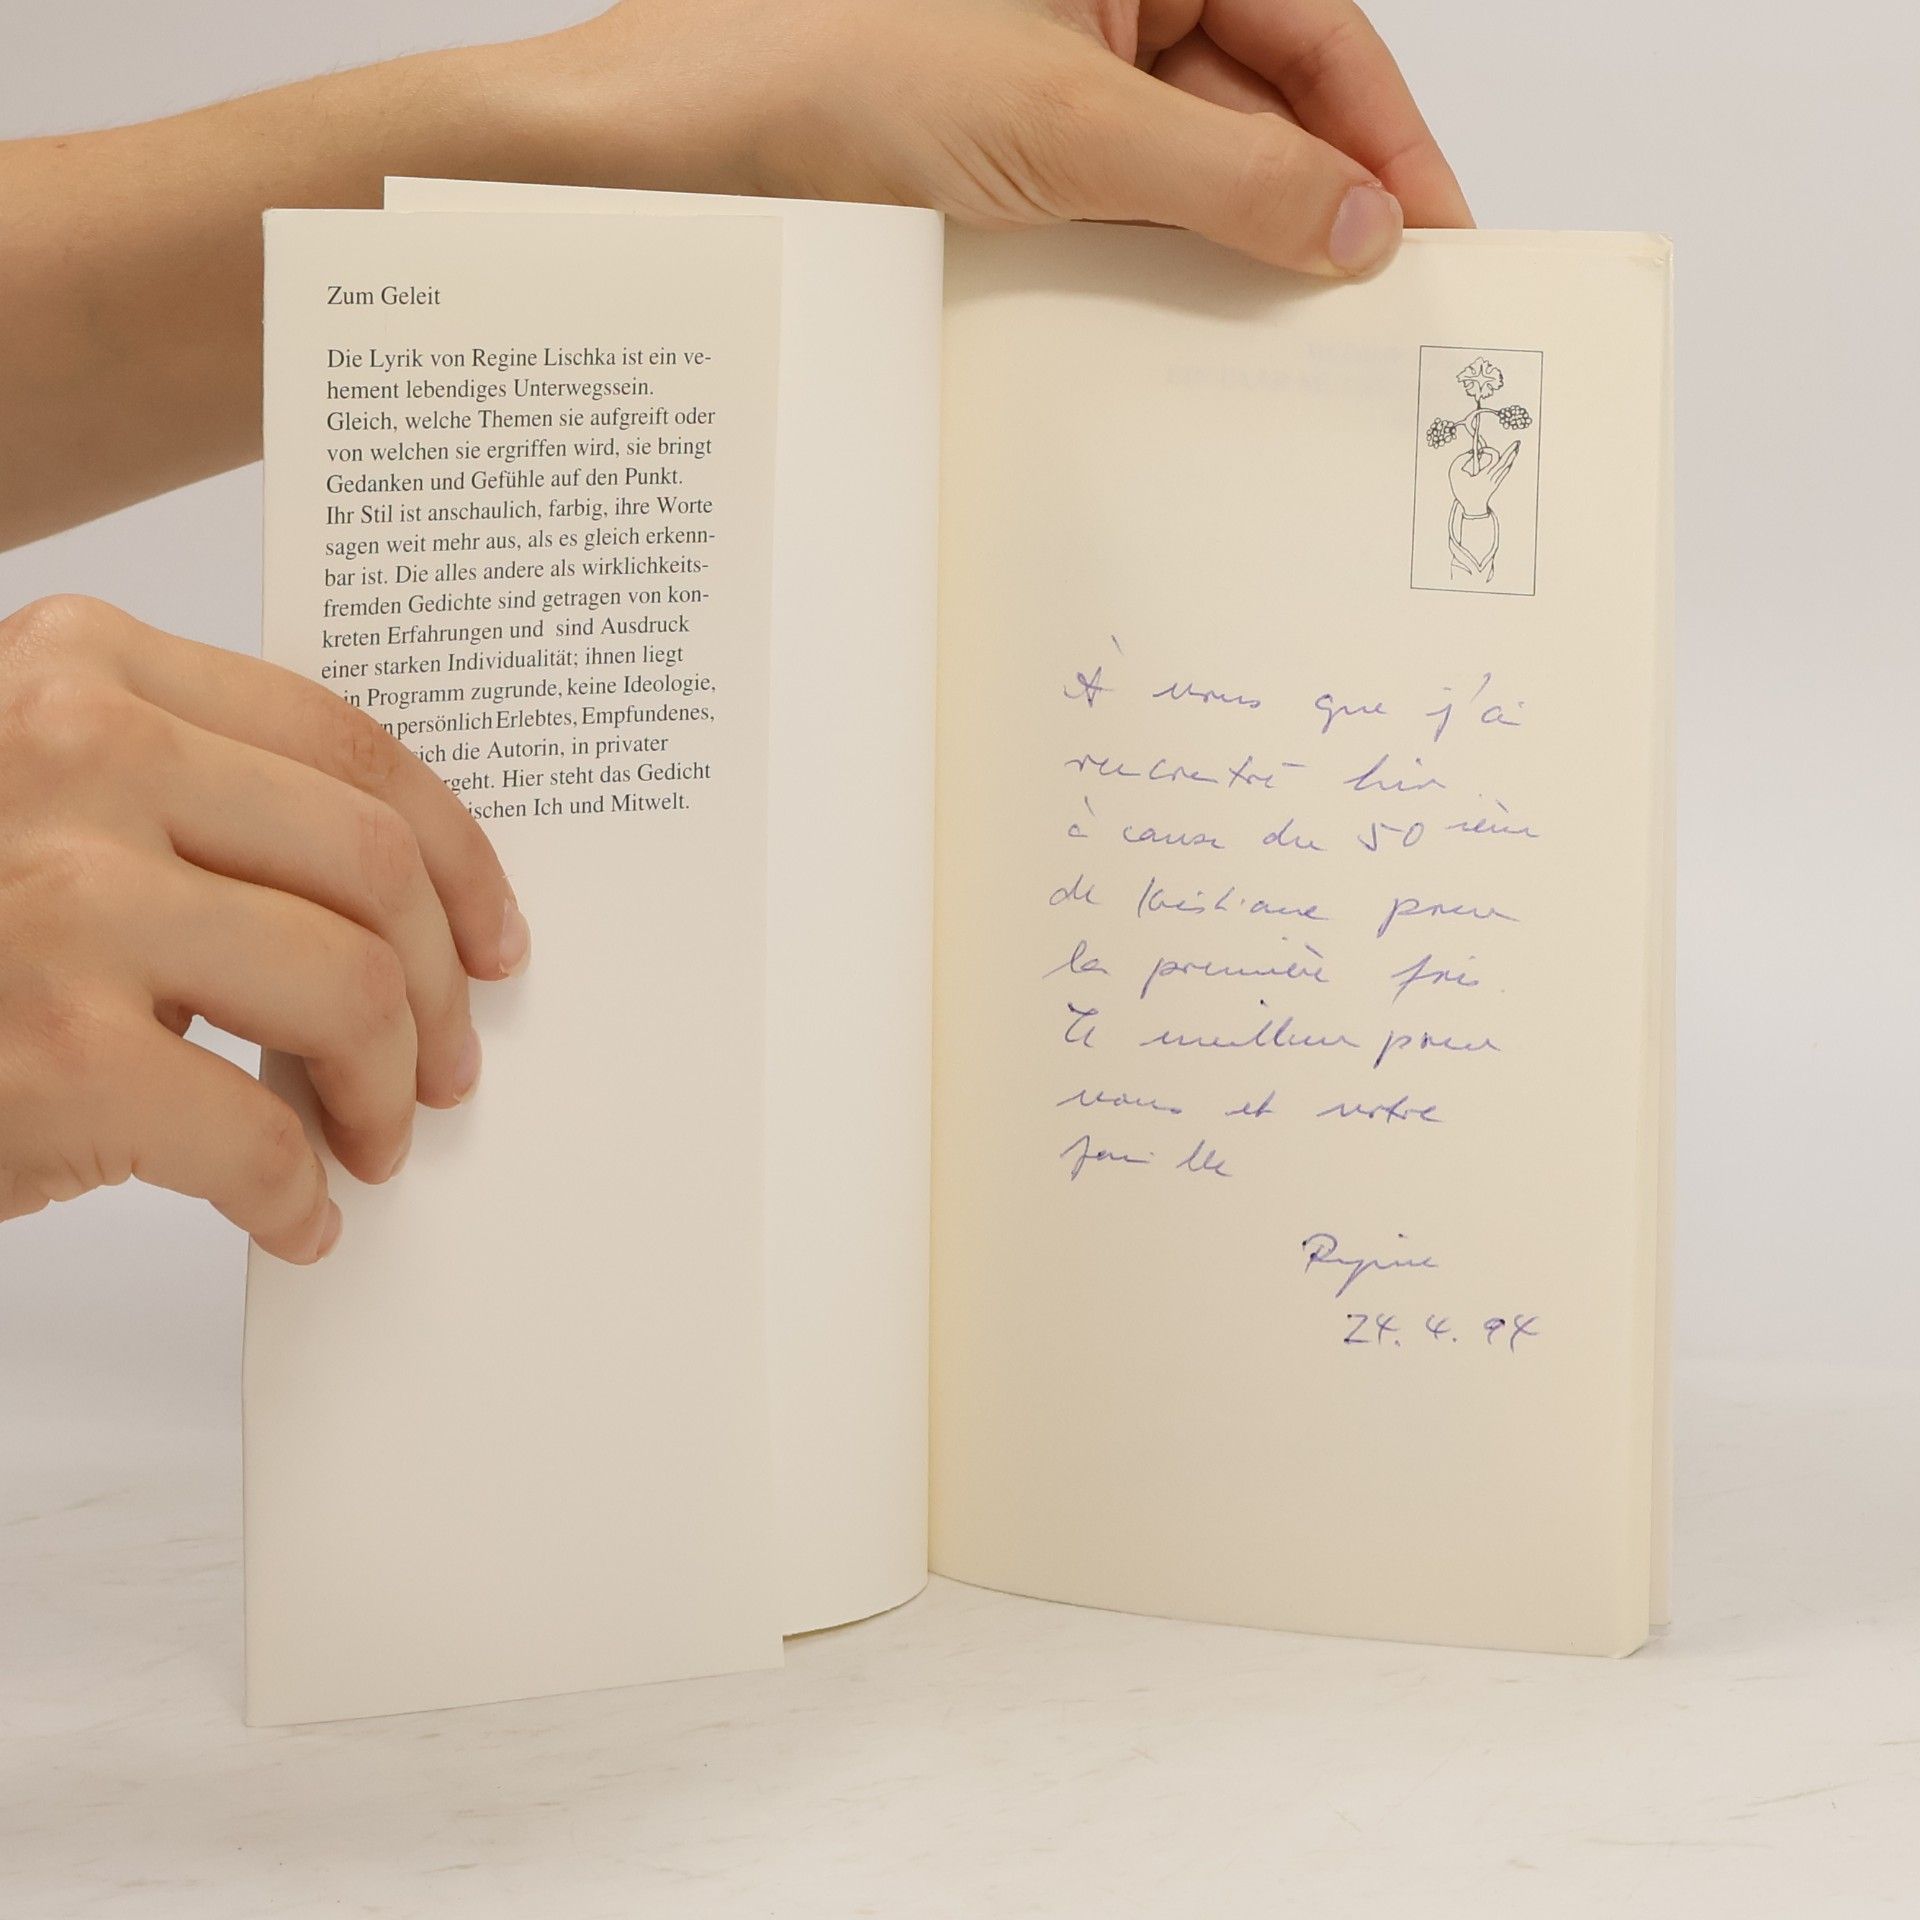 Zum Geleit
Die Lyrik von Regine Lischka ist ein ve-
hement lebendiges Unterwegssein.
Gleich, welche Themen sie aufgreift oder
von welchen sie ergriffen wird, sie bringt
Gedanken und Gefühle auf den Punkt.
Ihr Stil ist anschaulich, farbig, ihre Worte
sagen weit mehr aus, als es gleich erkenn-
bar ist. Die alles andere als wirklichkeits-
fremden Gedichte sind getragen von kon-
kreten Erfahrungen und sind Ausdruck
einer starken Individualität; ihnen liegt
in Programm zugrunde, keine Ideologie,
n persönlich Erlebtes, Empfundenes,
sich die Autorin, in privater
rgeht. Hier steht das Gedicht
ischen Ich und Mitwelt.
À vous que j'ai
rencontré hier
à cause du 50 ième
de Kristiane pour
la première fois.
Le meilleur pour
vous et votre
famille
Regine
24. 4. 94